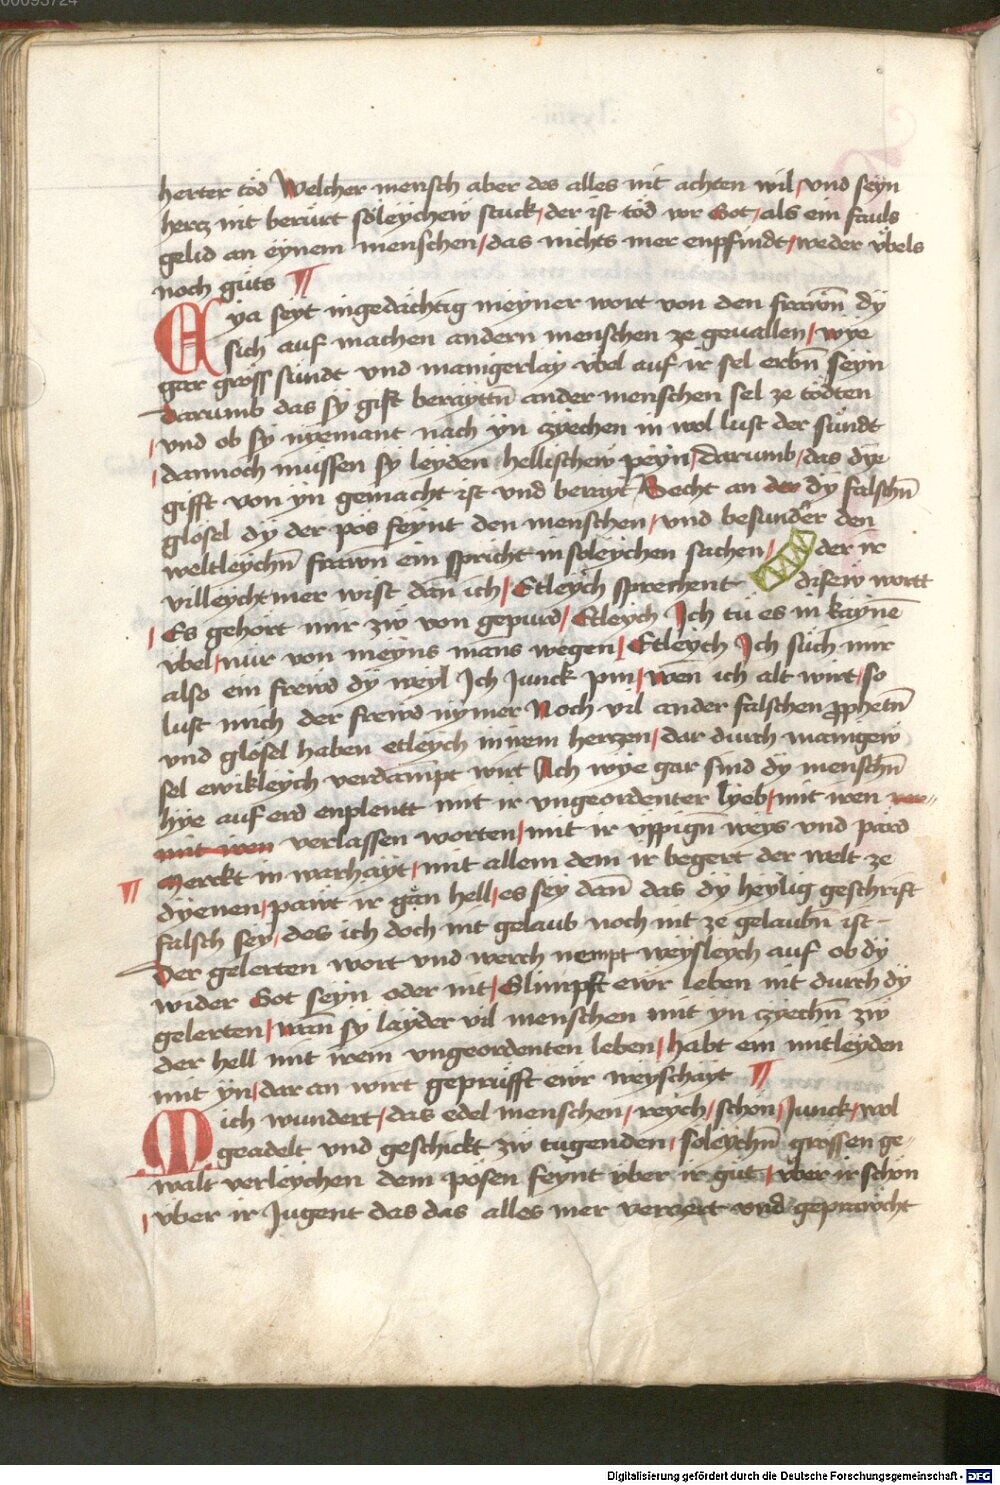 herter töd Welcher mensch aber des alles nit achten wil / vnd seyn
hercz nit berürt söleychew stuck / der ist tod vor Got / als ein fauls
gelid an eynem menschen / das nichts mer enpfindt / weder vbels
noch güts ¶
Eya seyt ingedächtig meyner wort von den frawn dy
sich auf machen andern menschen ze geuallen / wye
gar gröss sündt vnd manigerlay vbel auf ir sel erbn̄ seyn
Darumb das sy gift beraytn̄ ander menschen sel ze tödten
/ vnd ob sy nyemant nach yn czyechen in wol lust der sündt
/ dannoch müssen sy leyden hellischew peyn / darumb / das dye
gifft von yn gemacht ist vnd berayt Secht an der dy falschn̄
glosel dy der pös feynt den menschen / vnd besunder den
weltleychn̄ frawn ein spricht in soleychen sachen / der ir
villeycht mer wist dan ich / Etleych sprechent disew wortt
/ Es gehört mir zw von gepurd / Etleych Ich tü es in kaynē
vbel / nür von meyns mans wegen / Etleych Ich süch mir
also ein frewd dy weyl Ich Junck pin / wen ich alt wirt / so
lust mich der frewd nymer Noch vil ander falschen prophetn̄
vnd glösel haben etleych in irem herczen / dar durch manigew
sel ewikleych verdampt wirt Ach wye gar sind dy menschn̄
hye auf erd enplentt mit ir vngeordenter lyeb / mit iren ver-
mit iren verlassen worten / mit ir vppign̄ weys vnd pärd
¶ Merckt in warhayt / mit allem dem ir begert der welt ze
dyenen / pawt ir gän hell / es sey dan̄ das dy heylig geschrift
falsch sey / des ich doch nit gelaub noch nit ze gelaubn̄ ist -
Der gelerten wort vnd werch nempt weysleych auf ob dy
wider Got seyn oder nit / Glimpft ewr leben nit durch dy
gelerten / wan̄ sy layder vil menschen mit yn czyechn̄ zw
der hell mit irem vngeordenten leben / habt ein mitleyden
mit yn / dar an wirt geprüfft ewr weyschayt ¶
Mich wundert / das edel menschen / reych / schön / Junck / wol
geadelt vnd geschickt zw tugenden / soleychn̄ grossen ge-
walt verleychen dem pösen feynt vber ir güt / vber ir schön
/ vber ir Jugent das das alles mer verczert vnd geprawcht
Digitalisierung gefördert durch die Deutsche Forschungsgemeinschaft - DFG